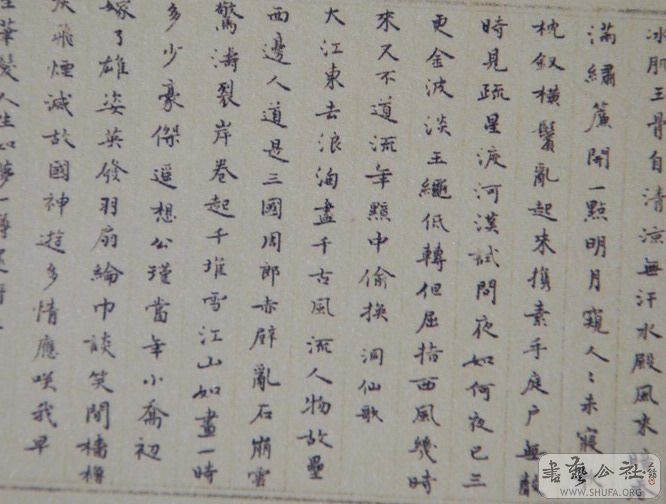 冰肌玉骨自清涼無汗水殿風來暗
滿繡簾開一點明月窺人〻未寢
枕釵橫鬢亂起來攜素手庭戶無聲
時見疏星渡河漢試問夜如何夜已三
更金波淡玉繩低轉但屈指西風幾時
來又不道流年顯中偷換洞仙歌
大江東去浪淘盡千古風流人物故壘
西邊人道是三國周郎赤壁亂石崩雲
驚濤裂岸卷起千堆雪江山如畫一時
多少豪傑遥想公瑾當年小喬初
嫁了雄姿英發羽扇綸巾談笑間檣櫓
灰飛煙滅故國神遊多情應笑我早
生華髮人生如夢一尊還
書藝公社
WWW.SHUFA.ORG